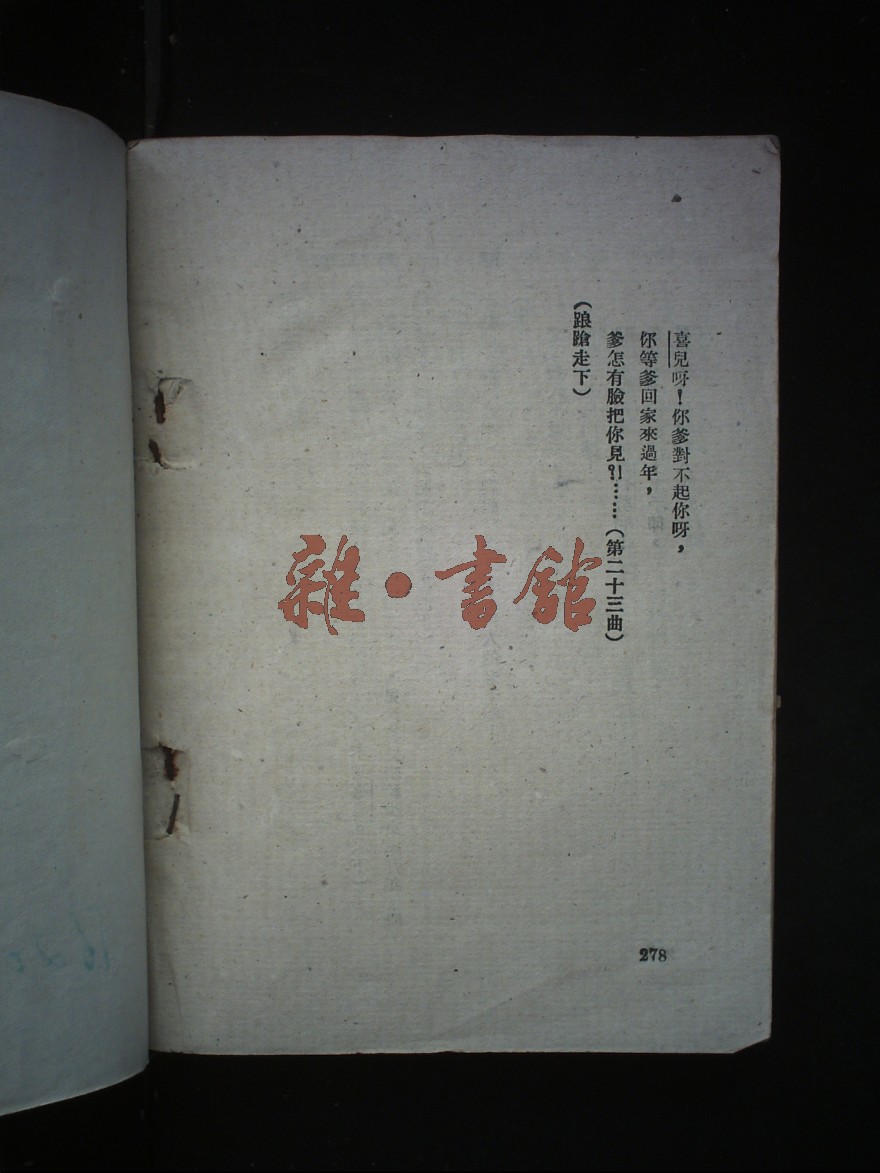 喜兒呀！你爹對不起你呀，
你等爹回家來過年，
爹怎有臉把你見?!……（第二十三曲）
（踉蹌走下）
雜·書舘
278